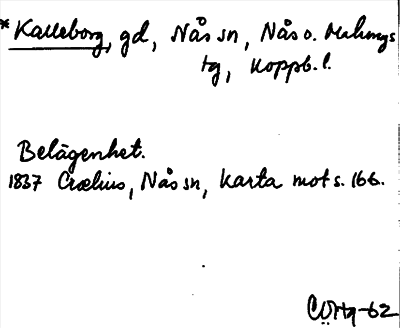 *Kalleborg, gd, Nås sn, Nås o. Malungs
tg, Koppb. l.
Belägenhet.
1837 Crælius, Nås sn, Karta mot s. 166.
CÖHg-62